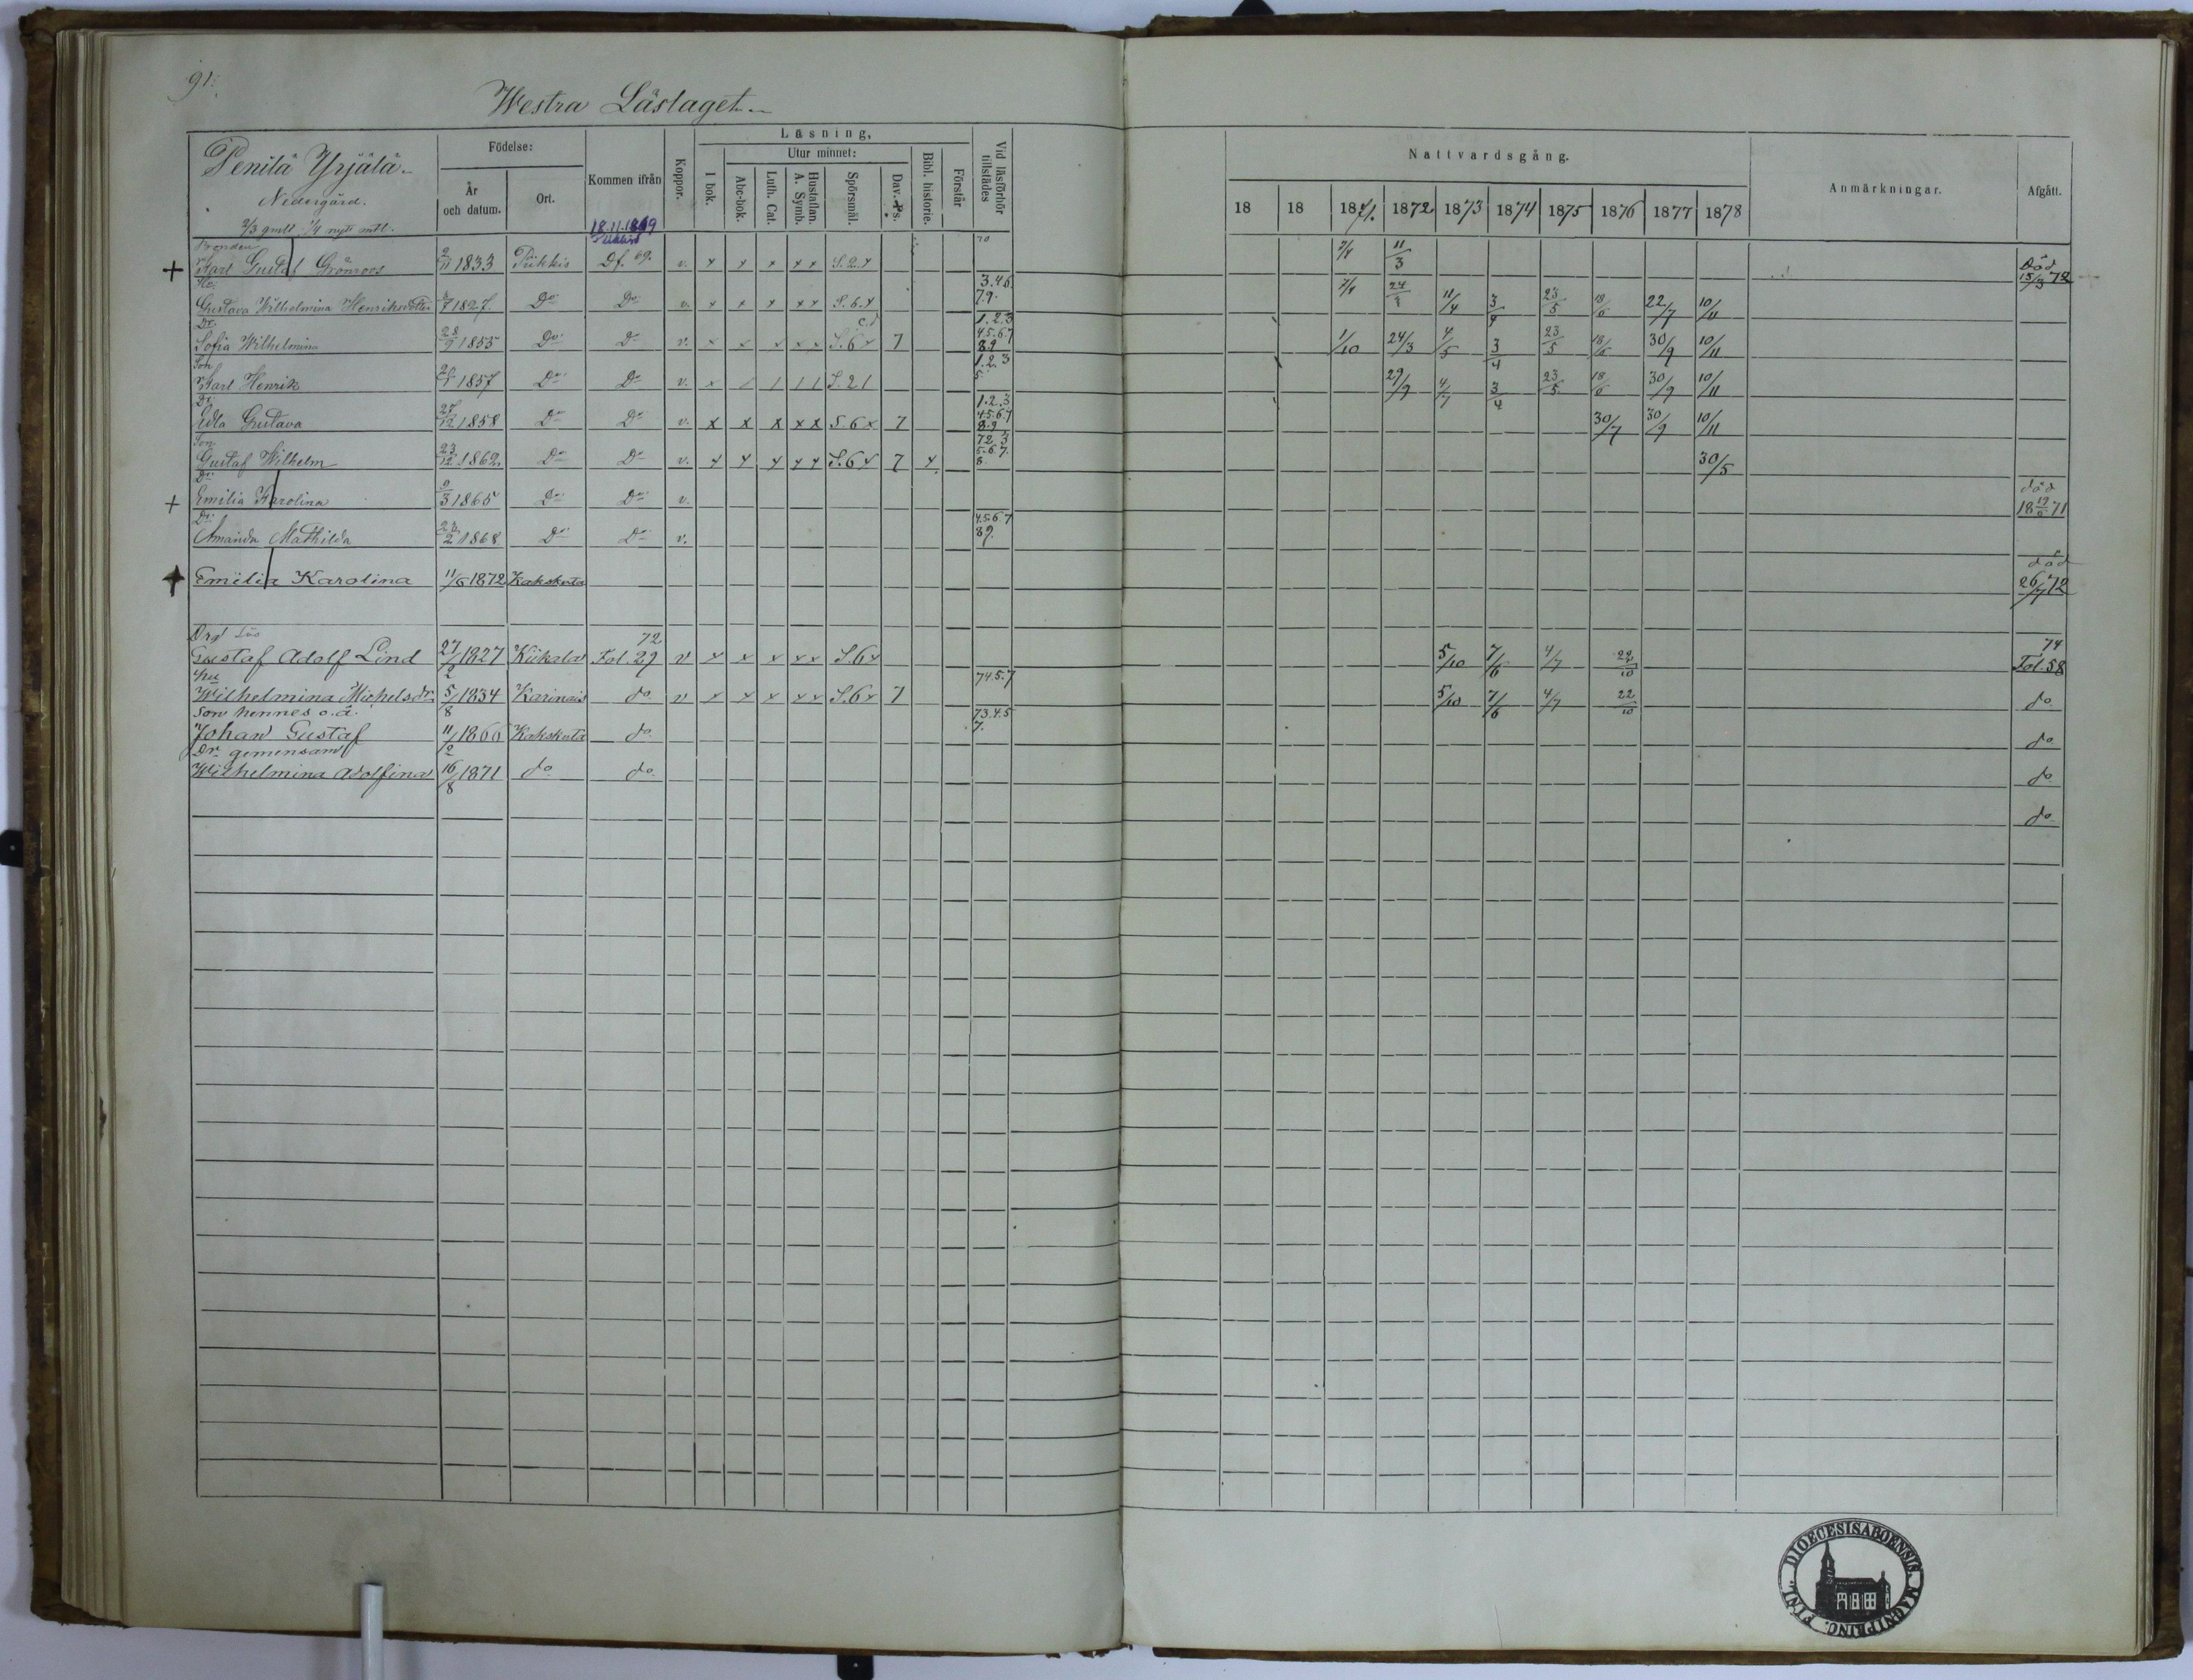 91.
Westra Läslaget.
Penilä Yrjälä
Nedergård.
2/3 gmlt 1/4 nytt mtl.
Födelse:
År och datum.
Ort.
Kommen ifrån
18.11.1869
Koppor.
Läsning,
I bok.
Utur minnet:
Abc-bok.
Luth. Cat.
Hustaflan. A. Symb.
Spörsmål.
Dav. Ps.
Bibl. historie.
Förstår
Vid läsförhör tillstädes
Nattvardsgång.
18 18 1871. 1872 1873 1874 1875 1876 1877 1878
Anmärkningar.
Afgått.
Bonden
+ Karl Gustaf Grönroos 2/11 1833 Piikkis Df. 69. v. x x x x x S.2.x 70 7/4 11/3 Död 15/3 72
Hu.
Gustava Wilhelmina Henriksdotter 1827. Do Do v. x x x x x S.6.x 3.4.6. 7.9. 7/4 24/3 11/4 3/4 23/5 18/6 22/7 10/11
Dr.
Sofia Wilhelmina 28/9 1855 Do Do v. x x x x x S.6x 7 1.2.3 4.5.6.7 8.9 1/10 24/3 4/5 3/4 23/5 18/6 30/9 10/11
Son
Karl Henrik 1857 Do Do v. x / / / / S.21 1.2.3 5. 29/9 4/7 3/4 23/5 18/6 30/9 10/11
Dr.
Edla Gustava 27/12 1858 Do Do v. x x x x x S.6x 7 1.2.3 4.5.6.7 8.9 30/7 30/9 10/11
Son
Gustaf Wilhelm 23/12 1862. Do Do v. x x x x x S.6x 7 x. 72.3 5.6.7. 8. 30/5
Dr.
+ Emilia Karolina 9/3 1865 Do Do v. död 18 19/6 71
Dr.
Amanda Mathilda 23/2 1868 Do Do v. 4.5.6.7 89.
+ Emilia Karolina 11/6 1872 Kakskerta död 26/7 72
Gustaf Adolf Lind 27/2 1827 Kiikala 72 Fol. 29 v x x x x x S.6x 5/10 7/6 4/7 22/10 74 Fol. 58
hu
Wilhelmina Michelsdr 5/8 1834 Karinais do v x x x x x S.6x 7 74.5.7 5/10 7/6 4/7 22/10 do
Son hennes o.ä.
Johan Gustaf 11/2 1866 Kakskerta do 73.4.5 7. do
Dr gemensam
Wilhelmina Adolfina 16/8 1871 do do do
do
FINL. DIOECESIS ABOENSIS. MAGNI PRINC.